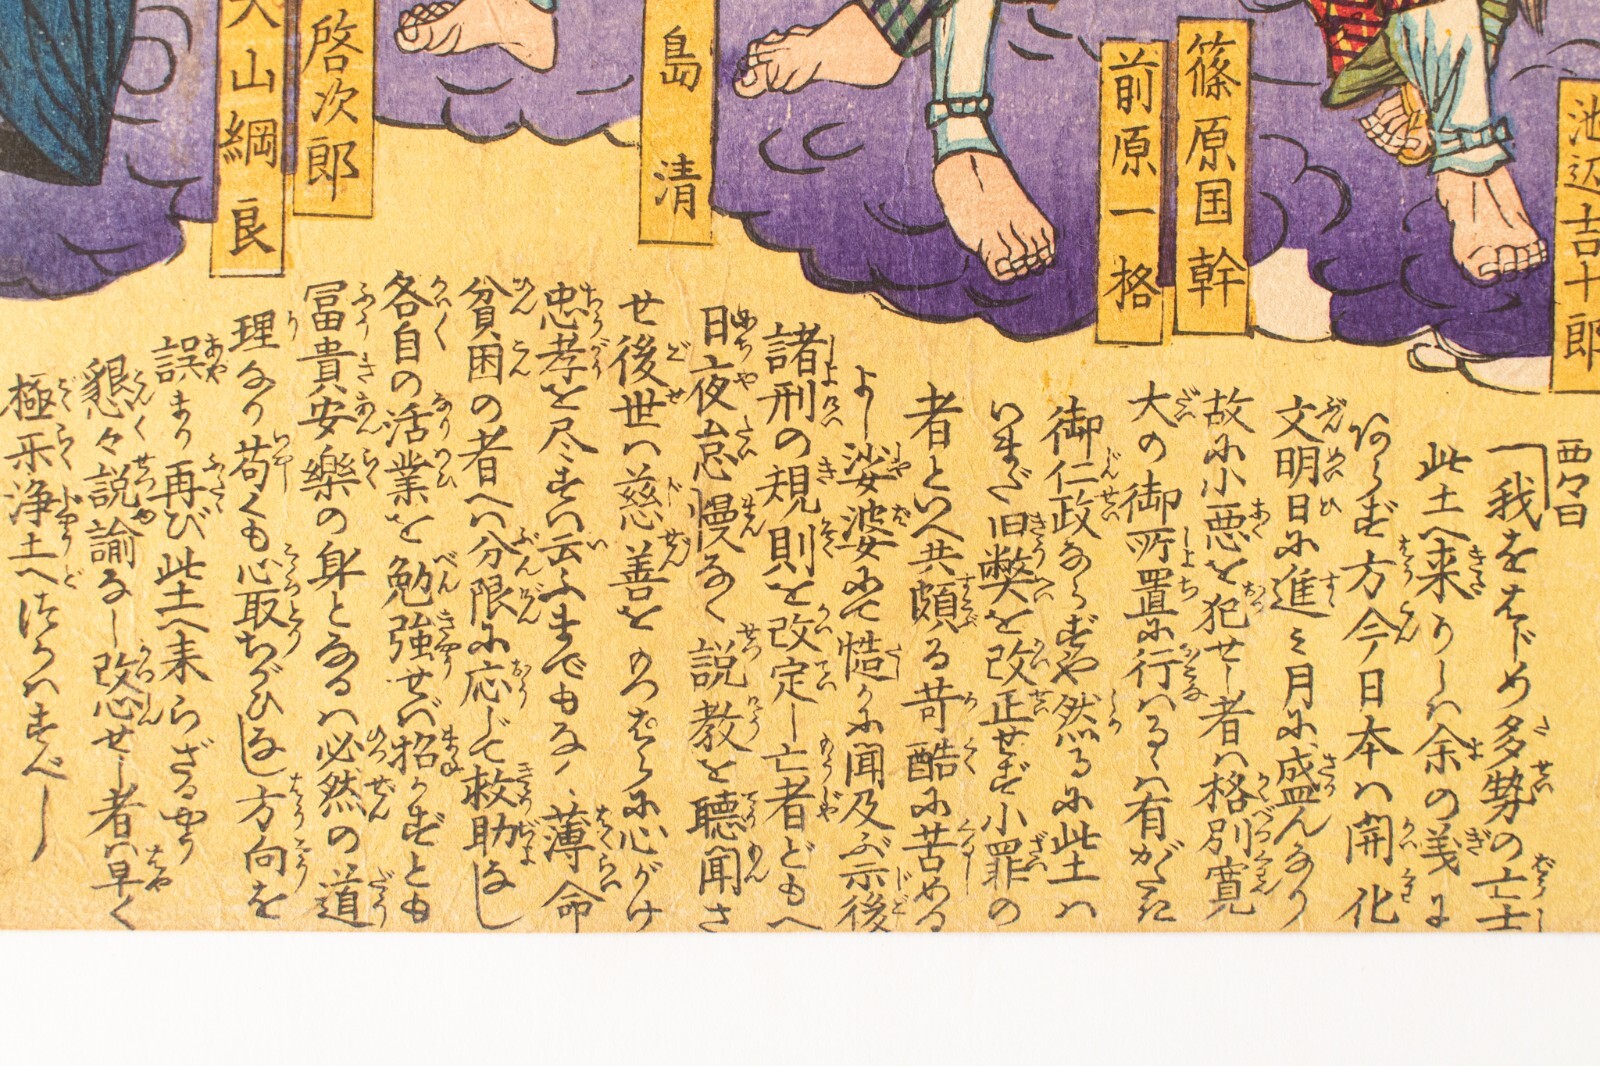 池辺吉十郎
篠原国幹
前原一格
島 清
啓次郎
山綱良
西々曰
「我をはじめ多勢の亡士
此土へ来りしハ余の義に
あらず方今日本ハ開化
文明日に進ミ月に盛んなり
故に小悪を犯せし者ハ格別寛
大の御所置に行ハるゝハ有がたき
御仁政ならずや然るに此土ハ
いまだ旧弊を改正せず小罪の
者といへ共頗る苛酷に苦める
よし娑婆にて慥かに聞及ぶ示後
諸刑の規則を改定し亡者どもへ
日夜怠慢なく説教を聴聞さ
せ後世ハ慈善をのつはらに心がけ
忠孝を尽すハ云ふまでもなく薄命
貧困の者へハ分限に応じて救助なし
各自の活業を勉強せバ招かずとも
冨貴安樂の身となるハ必然の道
理なり苟くも心取ちがひなし方向を
誤まり再び此土へ来らざる やう
懇々説諭なし改心せし者ハ早く
極楽浄土へ つかハすべし